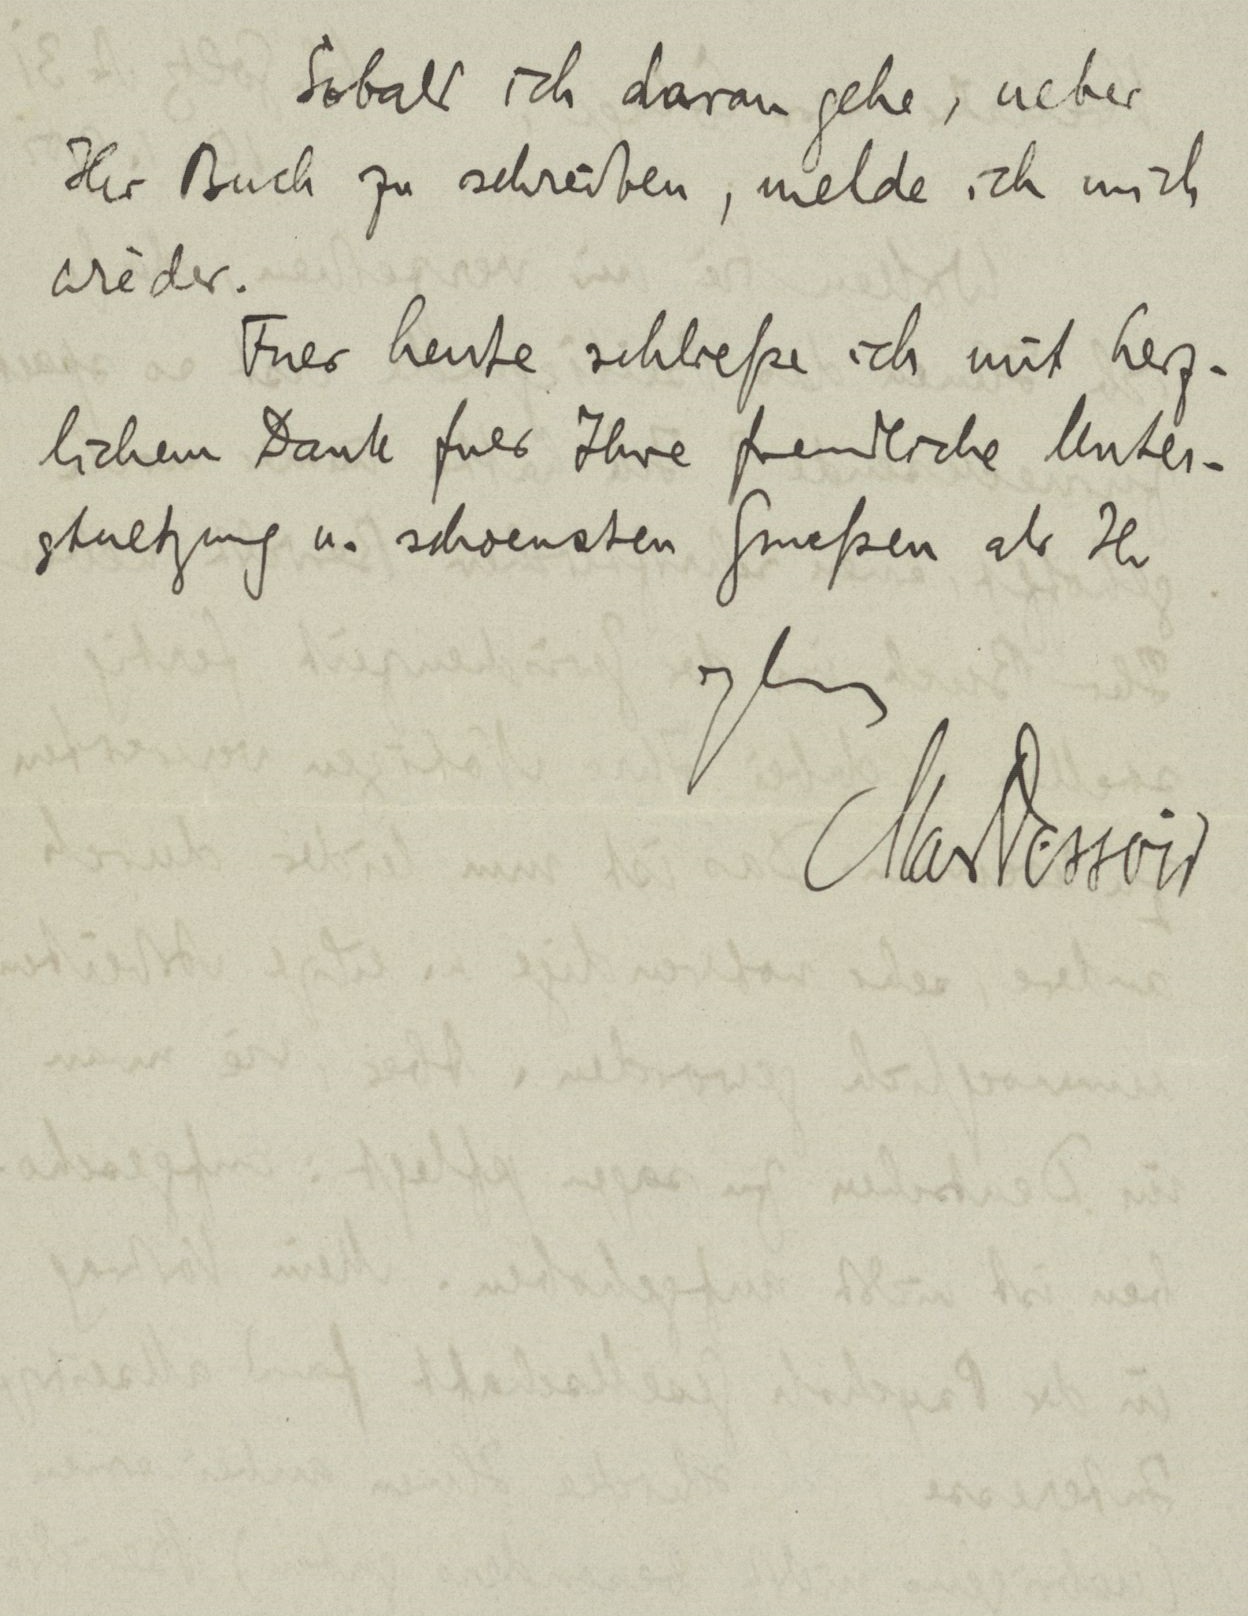 Sobald ich daran gehe, ueber
Ihr Buch zu schreiben, melde ich mich
wieder.
Fuer heute schließe ich mit herz-
lichem Dank fuer Ihre freundliche Unter-
stuetzung u. schoensten Grueßen als Ihr
Max Dessoir